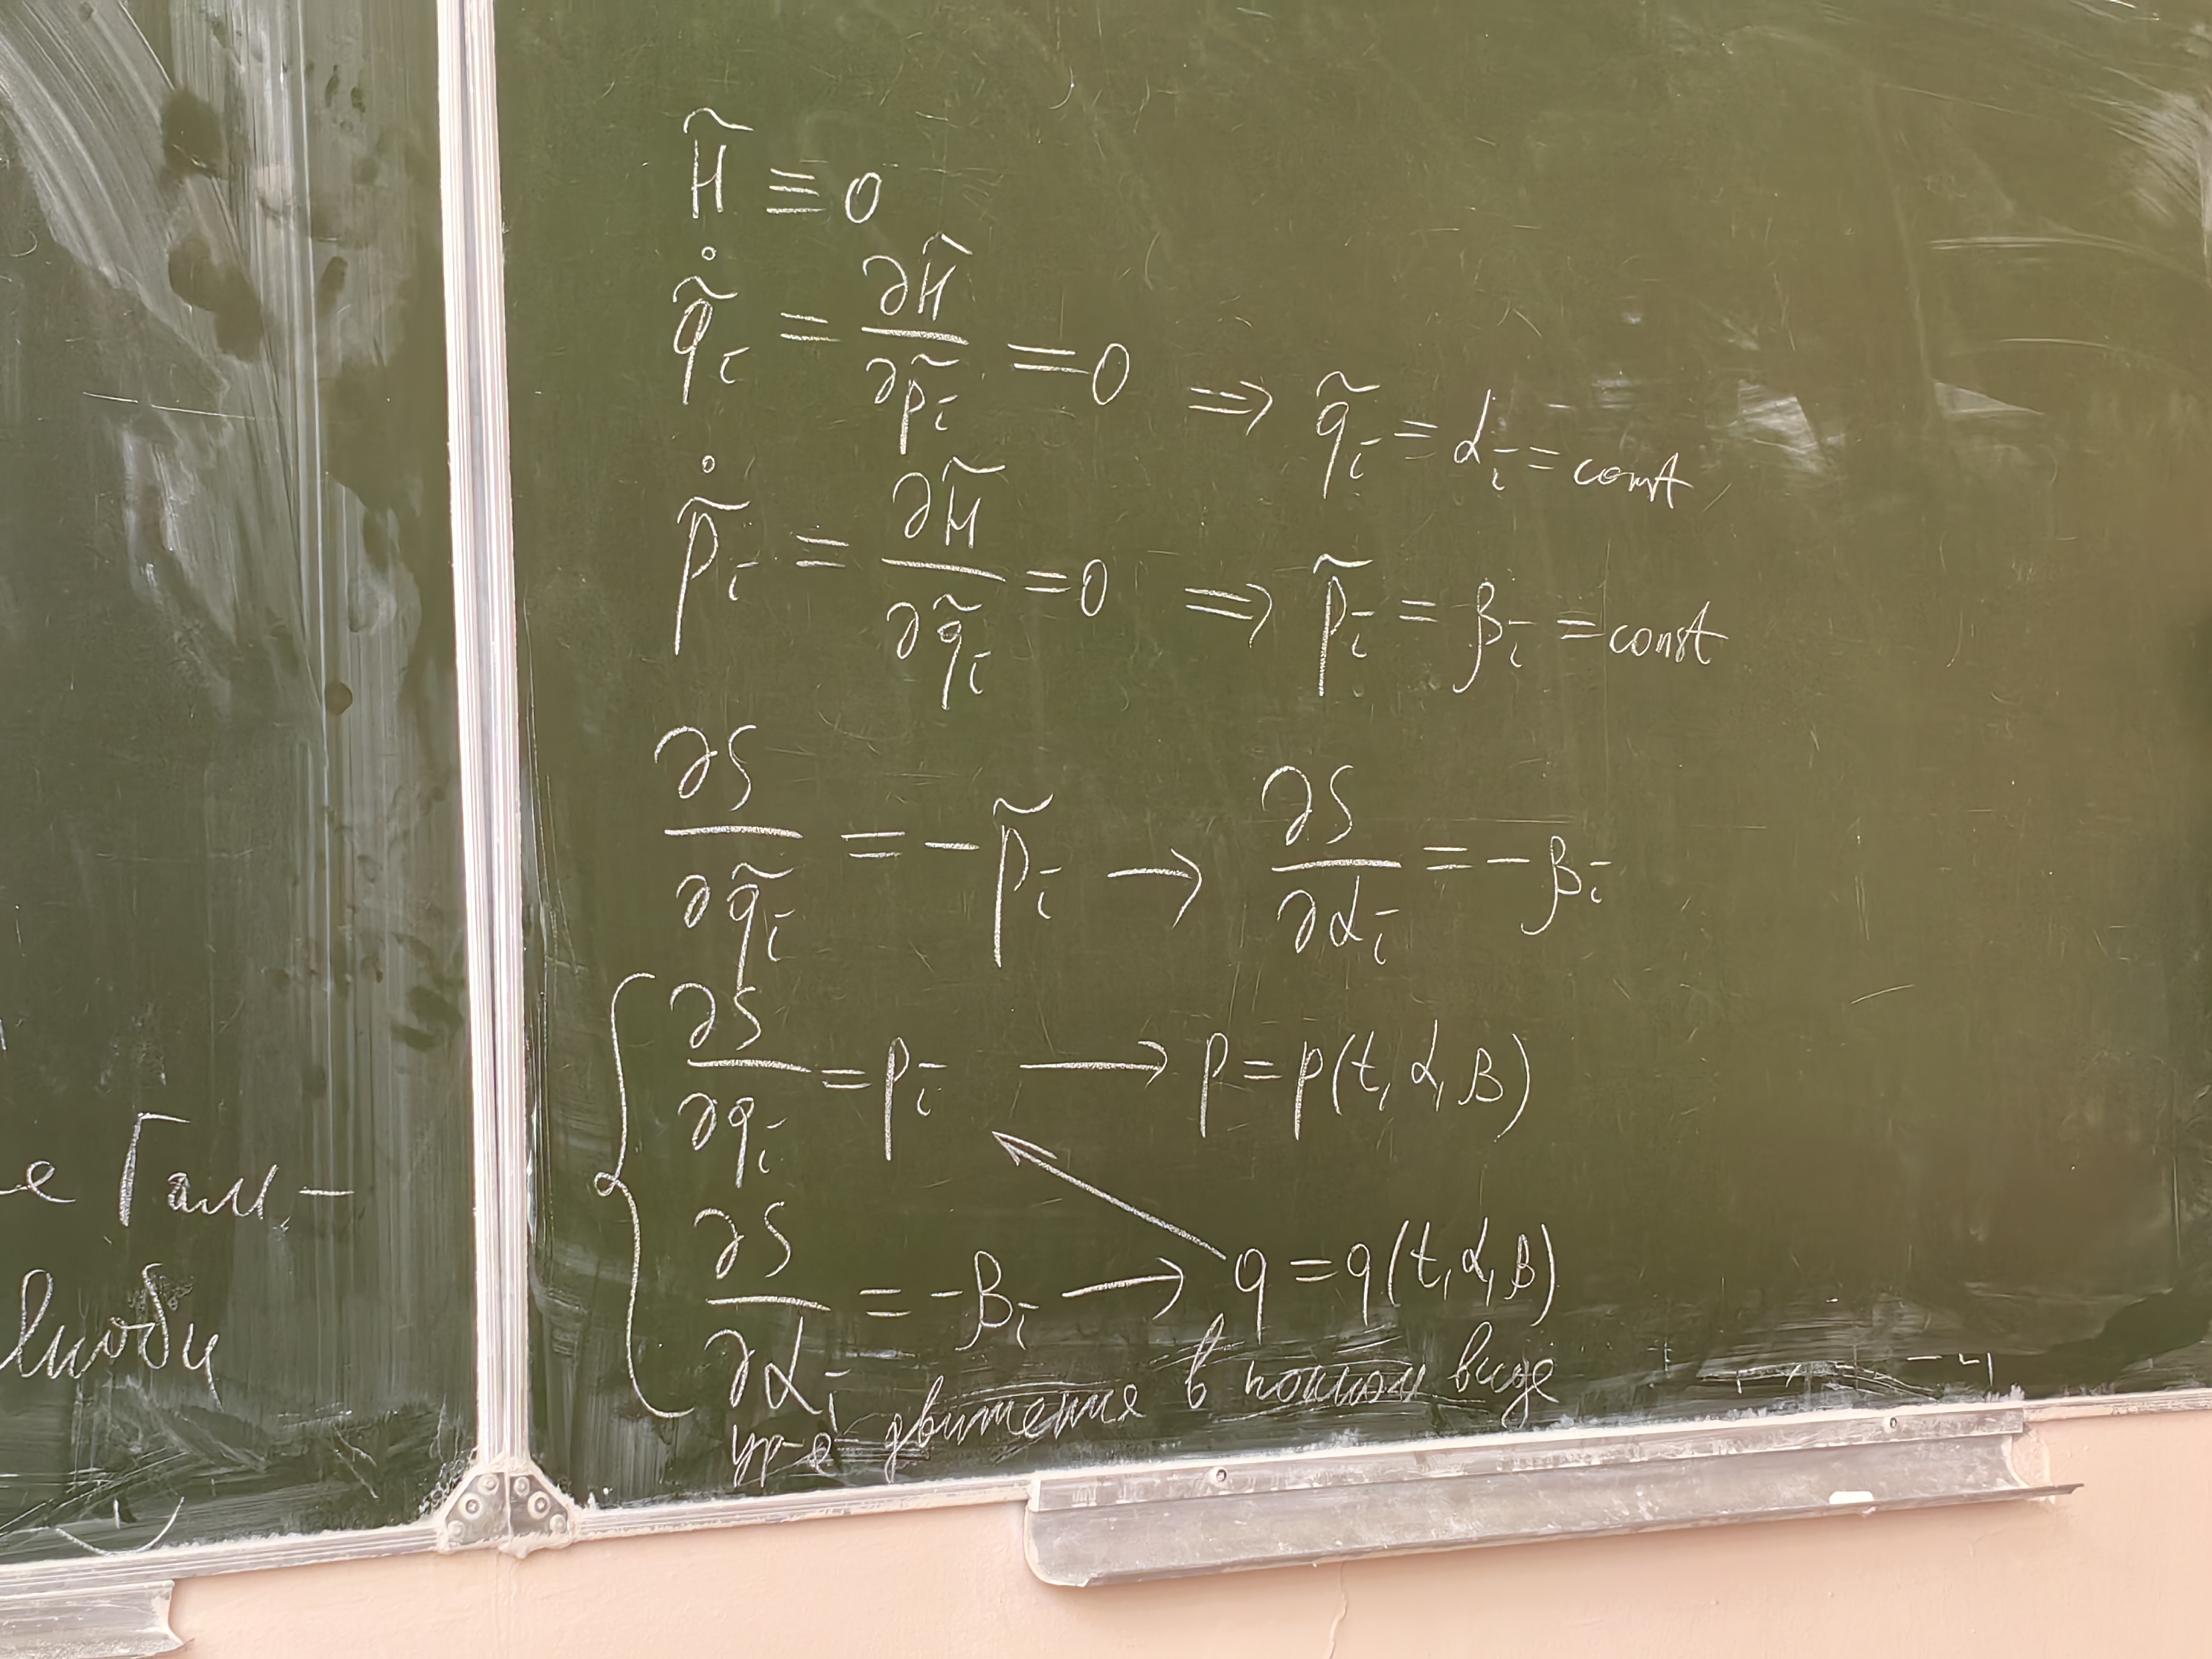 е Гам-
H̃ ≡ 0
q̃̇ᵢ = ∂H̃/∂p̃ᵢ = 0 ⇒ q̃ᵢ = αᵢ = const
p̃̇ᵢ = ∂H̃/∂q̃ᵢ = 0 ⇒ p̃ᵢ = βᵢ = const
∂S/∂q̃ᵢ = -p̃ᵢ → ∂S/∂αᵢ = -βᵢ
∂S/∂qᵢ = pᵢ → p = p(t, α, β)
∂S/∂αᵢ = -βᵢ → q = q(t, α, β)
ур-е движения в виде